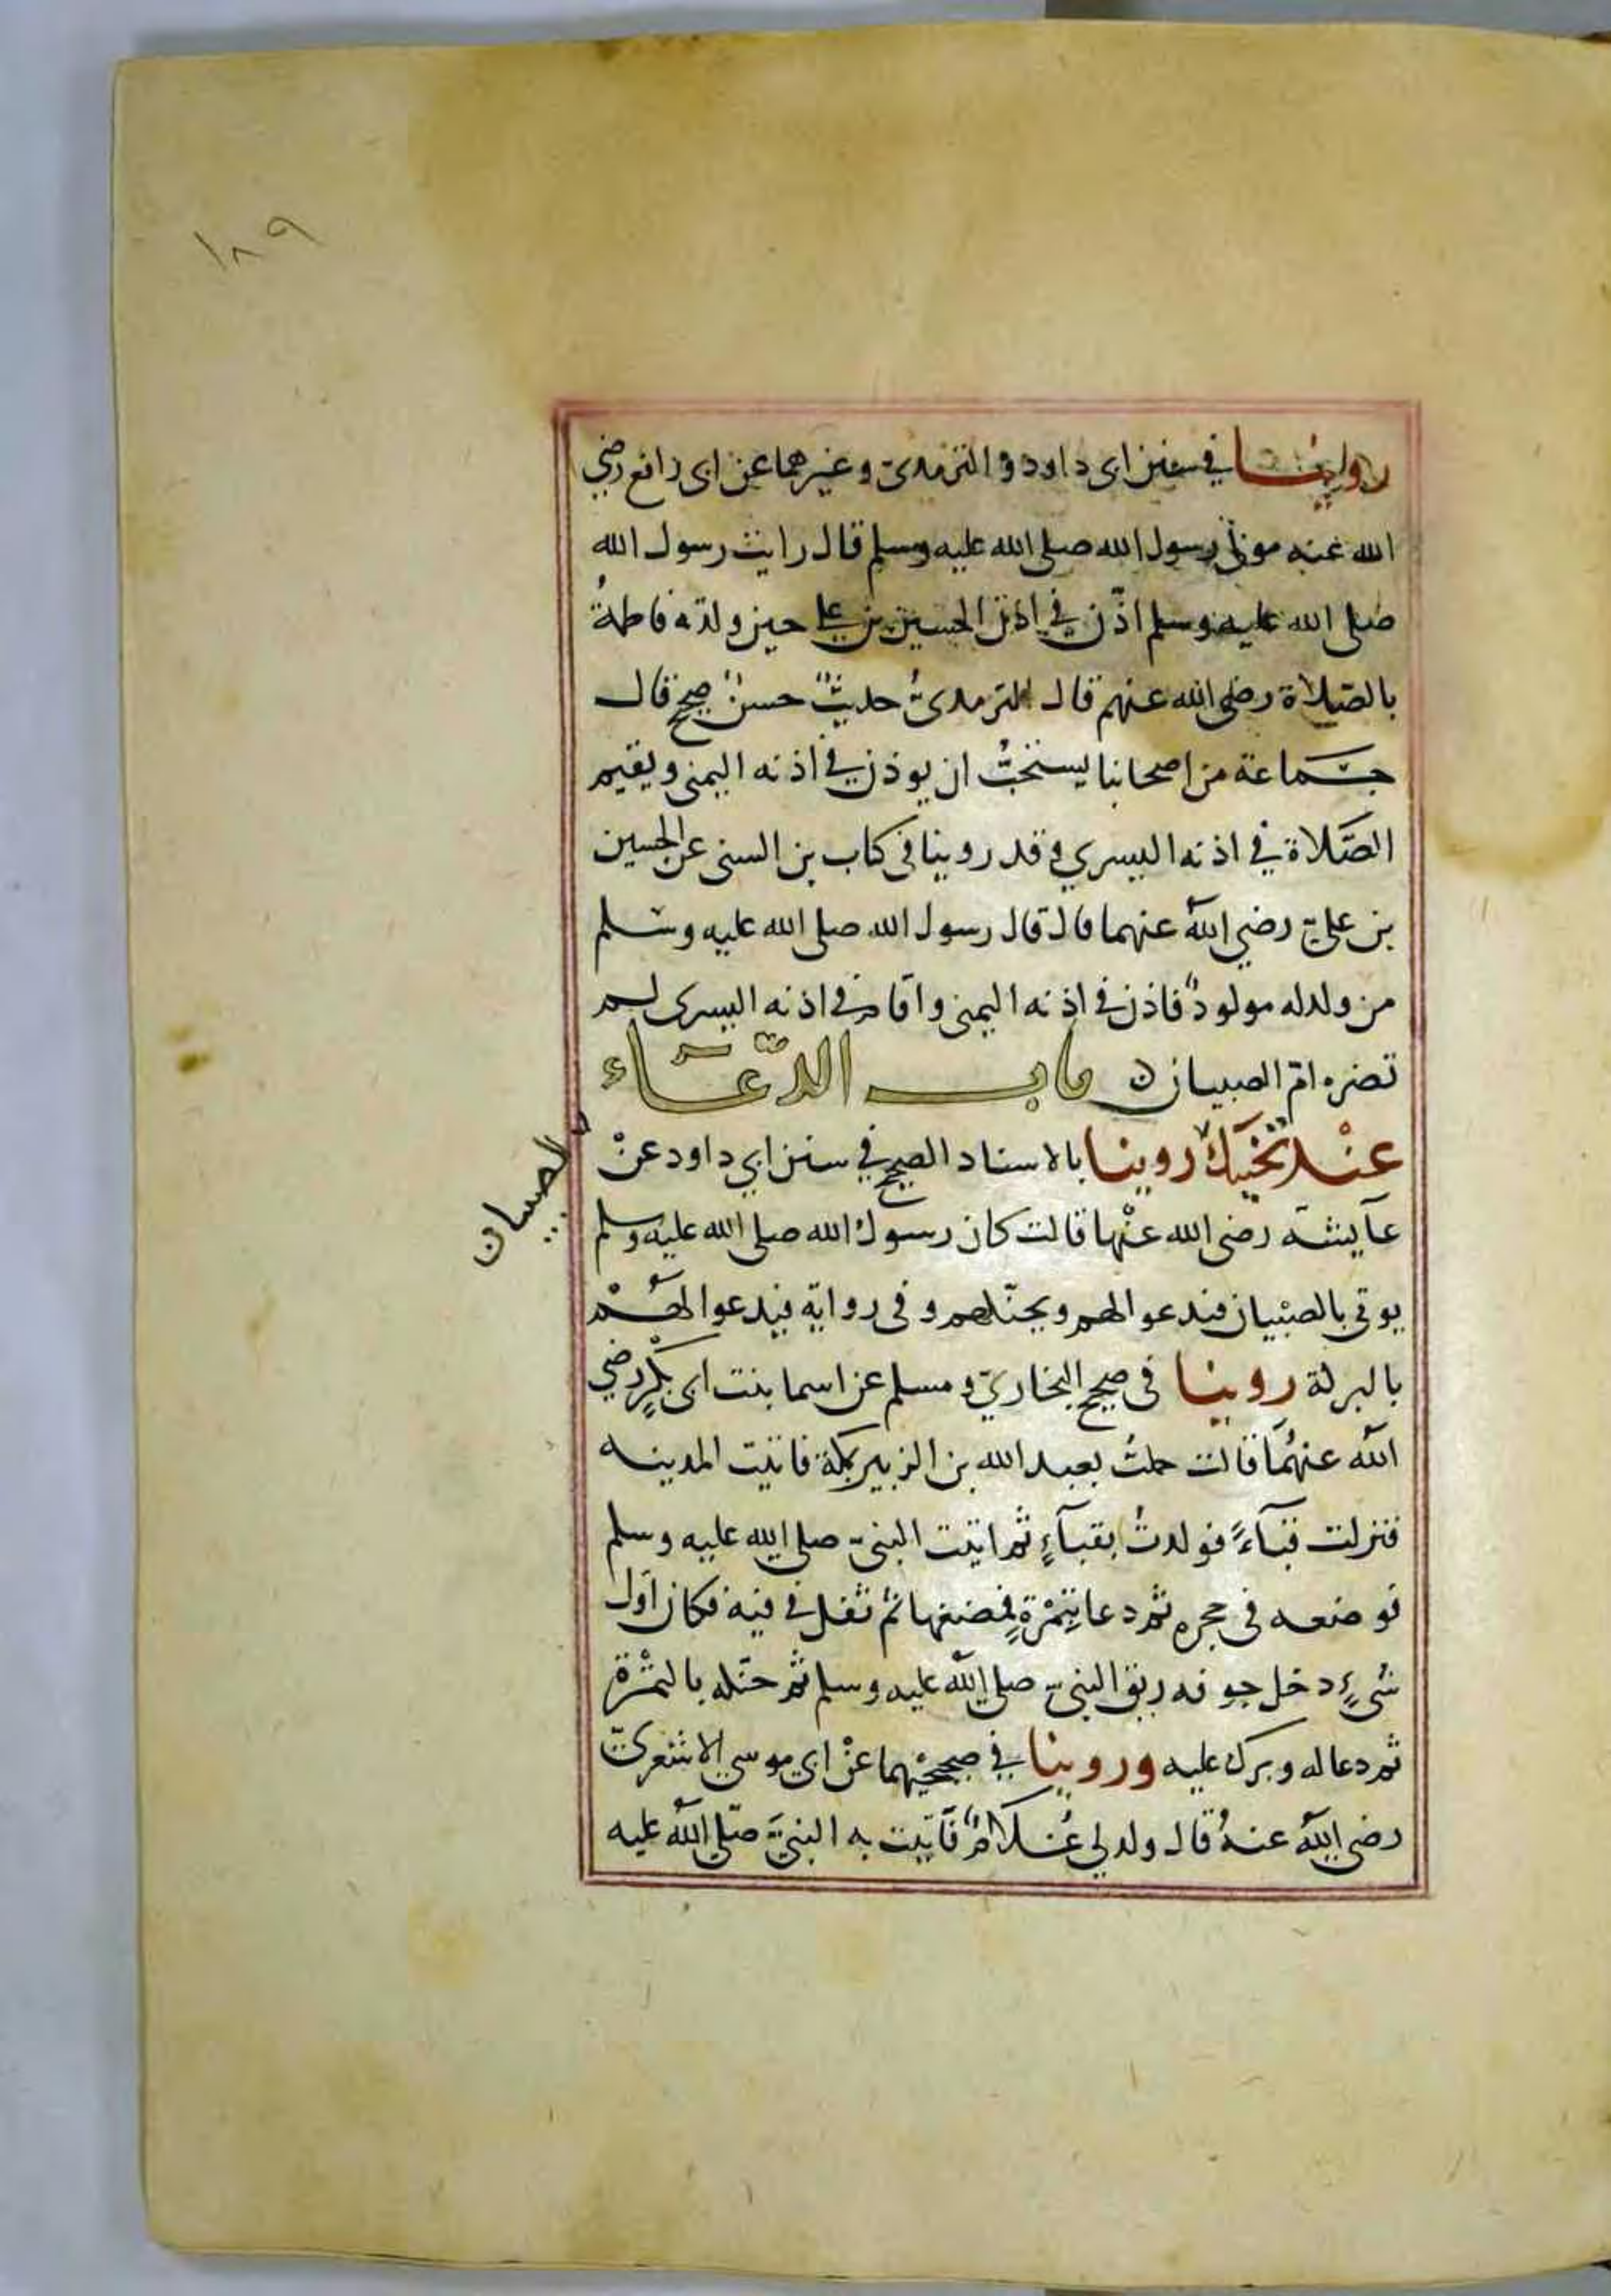 ١٨٩
روينا في سنن ابى داود والترمذى وغيرهما عن ابى رافع رضي
الله عنه مولى رسول الله صلى الله عليه وسلم قال رايت رسول الله
صلى الله عليه وسلم اذّن في اذن الحسين بن علي حين ولدته فاطمةُ
بالصلاة رضي الله عنهم قال الترمذىُّ حديثٌ حسنٌ صحيح قال
جماعة من اصحابنا يستحبُّ ان يوذن في اذنه اليمنى ويقيم
الصَّلاة في اذنه اليسري وقد روينا فى كتاب بن السنى عن الحسين
بن عليّ رضي الله عنهما قال قال رسول الله صلى الله عليه وسلم
من ولد له مولودٌ فاذن في اذنه اليمنى واقام في اذنه اليسرى لم
تضره امّ الصبيان ن باب الدّعَاء
عنْد تَحْنيك روينا بالاسناد الصحيح في سنن ابي داود عنْ
الصبيان
عآيشة رضى الله عنْها قالت كان رسول الله صلى الله عليه وسلم
يوتى بالصبْيان فيدعوا لهم ويحنّكهم وفى رواية فيدعوا لهُمْ
بالبركة روينا فى صحيح البخاريّ ومسلم عن اسما بنت ابى بكْرٍ رضي
الله عنهُمَا قالت حملتُ بعبد الله بن الزبير بمكة فاتيت المدينه
فنزلت قبآءً فولدتُ بقبآءٍ ثم اتيت النبىّ صلى الله عليه وسلم
فوضعه فى حجره ثم دعا بتمْرةٍ فمضغها ثمّ تفل في فيه فكان اول
شىءٍ دخل جوفه ريق النبىّ صلى الله عليه وسلم ثم حنّكه بالتمْرة
ثم دعا له وبرك عليه وروينا في صحيحيْهما عنْ ابي موسي الاشعرىّ
رضى الله عنهُ قال ولد لي غُلامٌ فاَتيت به النبيّ صلّى الله عليه